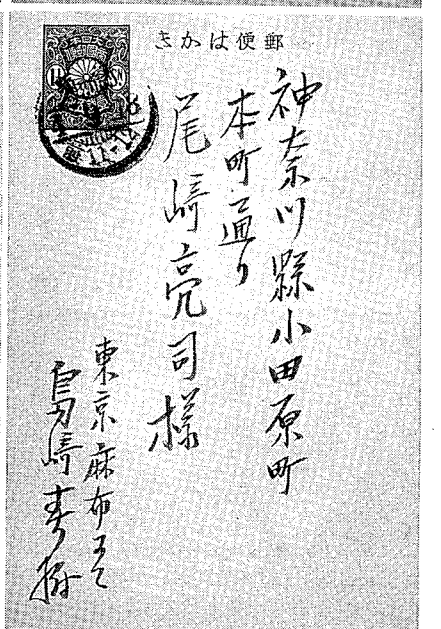 郵便はかき
神奈川縣小田原町
本町通り
尾崎亮司様
東京麻布にて
島崎春樹